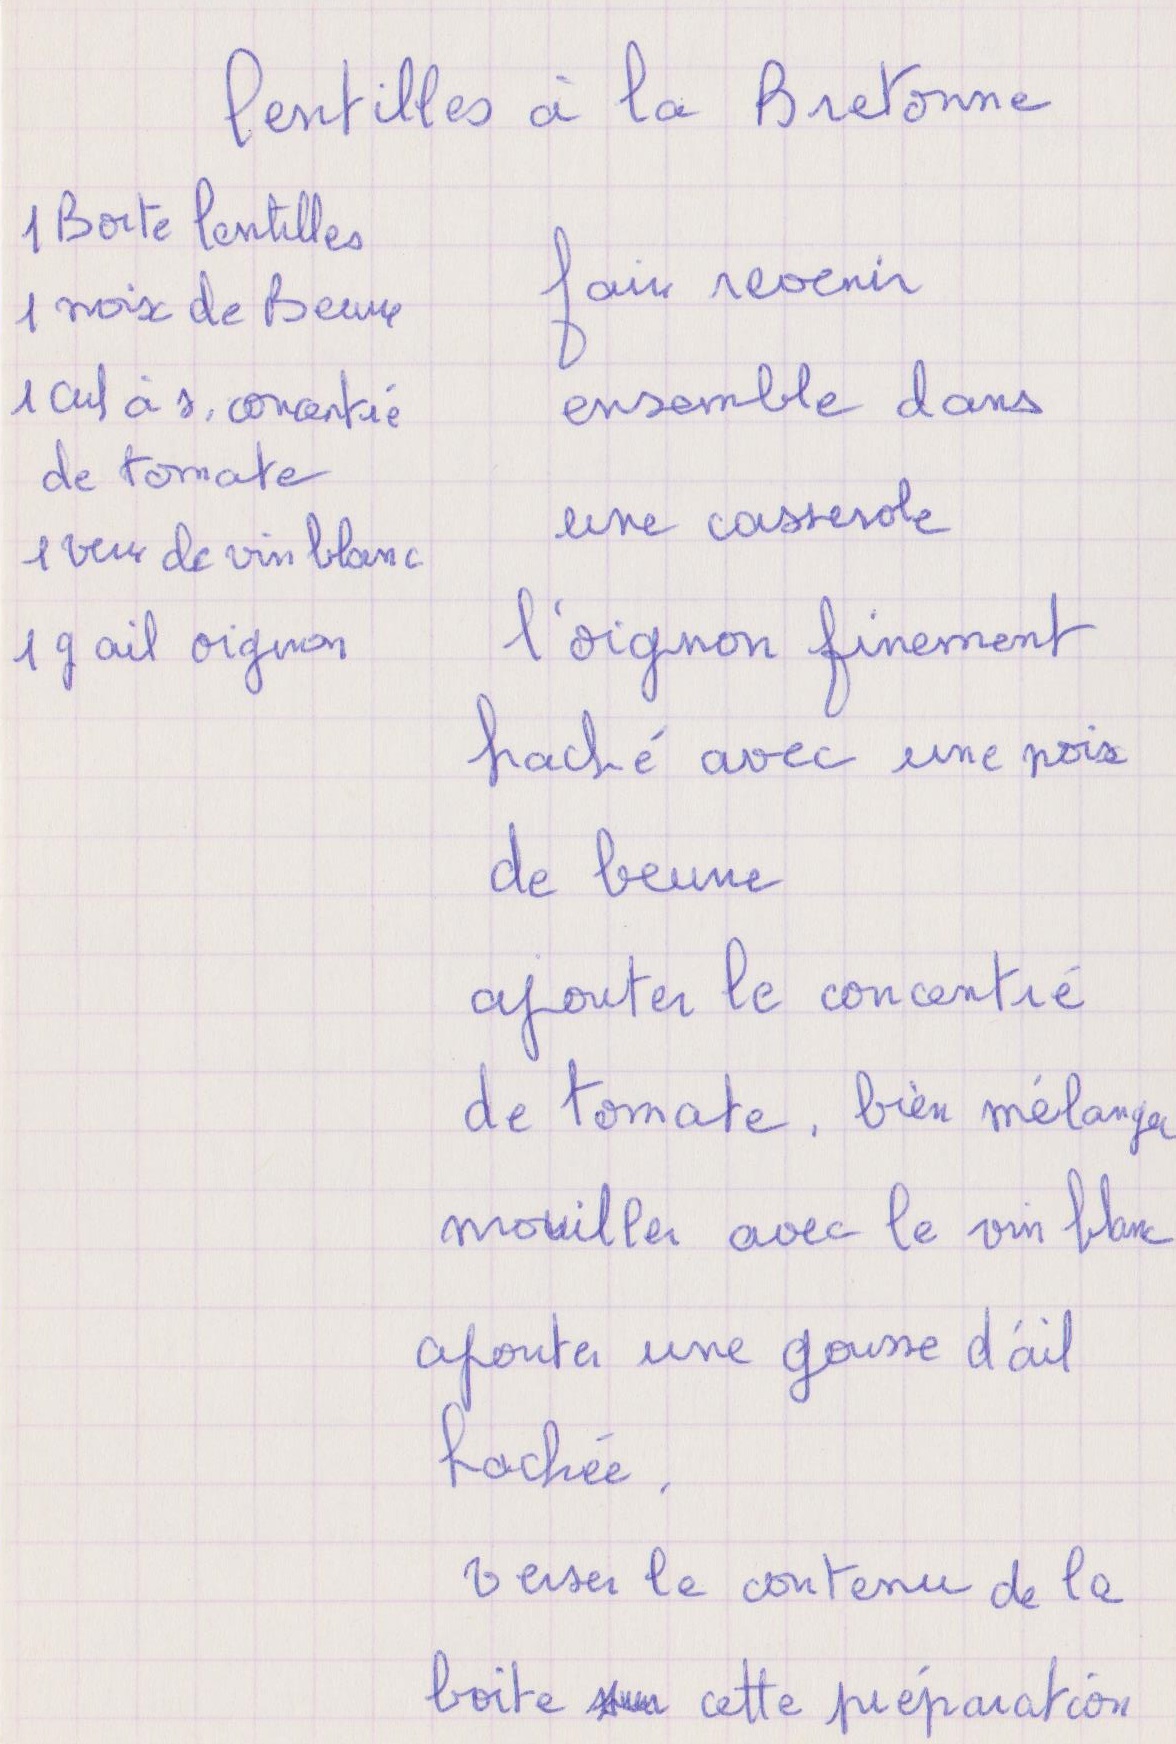 lentilles à la Bretonne
1 Boite lentilles
1 noix de Beurre
1 cuil à s. concentré
de tomate
1 verre de vin blanc
1 g ail oignon
faire revenir
ensemble dans
une casserole
l'oignon finement
haché avec une noix
de beurre
ajouter le concentré
de tomate, bien mélanger
mouiller avec le vin blanc
ajouter une gousse d'ail
hachée,
verser le contenu de la
boite sur cette préparation